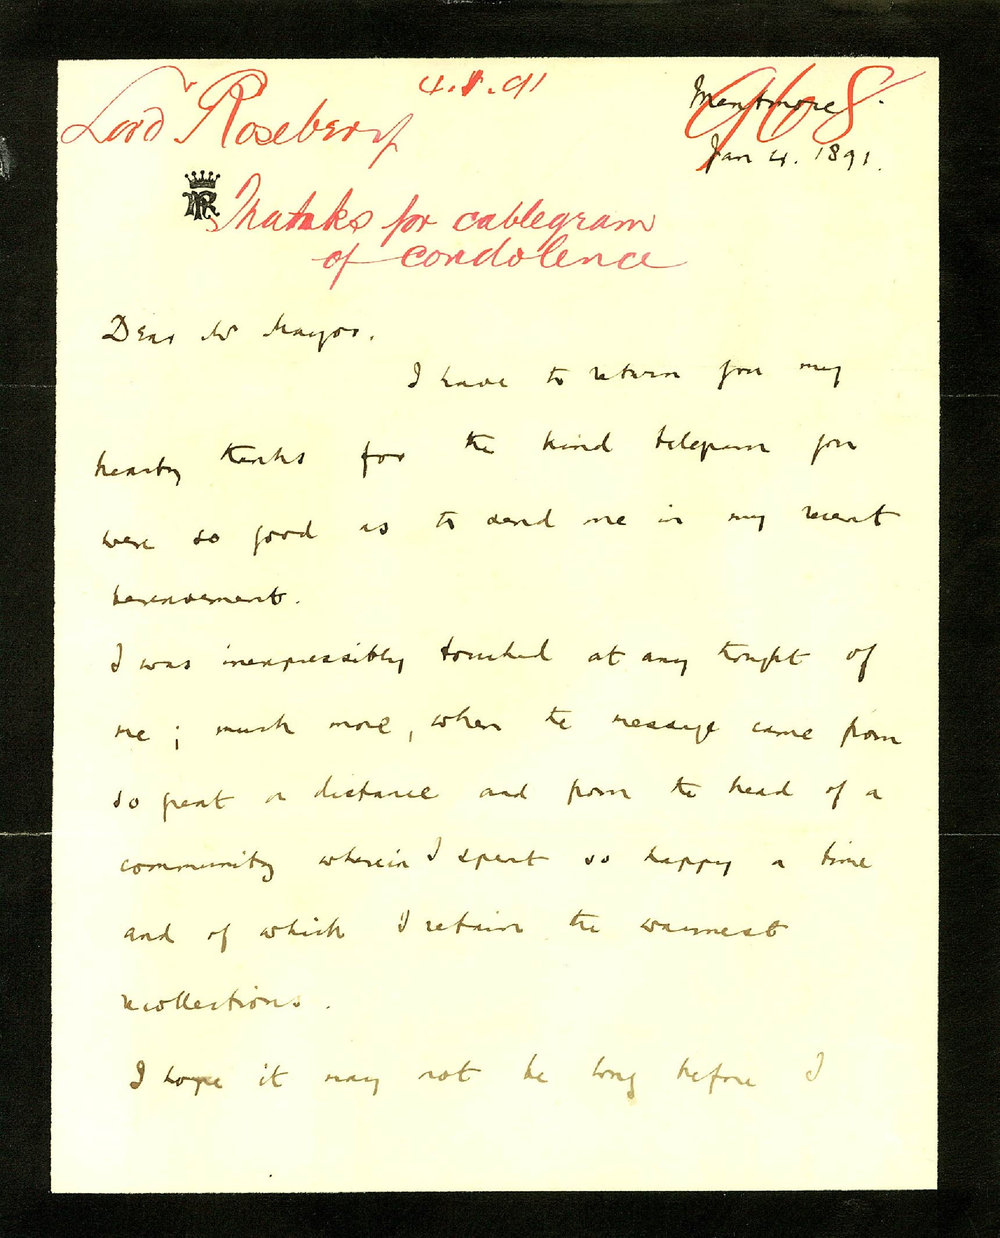 Lord Rosebery
4.1.91
968
Mentmore.
Jan 4. 1891.
Thanks for cablegram
of condolence
Dear Mr Mayor.
I have to return you my
hearty thanks for the kind telegram you
were so good as to send me in my recent
bereavement.
I was inexpressibly touched at any thought of
me; much more, when the message came from
so great a distance and from the head of a
community wherein I spent so happy a time
and of which I retain the warmest
recollections.
I hope it may not be long before I